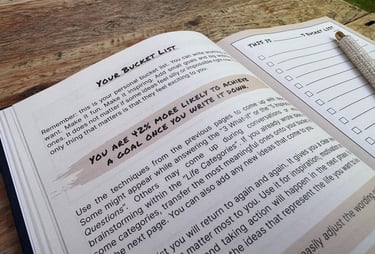 YOUR BUCKET LIST
Remember: this is your personal bucket list. You can write anything you
want. Make it fun. Make it inspiring. Add small goals and big
ones. It does not matter if some ideas feel silly or impossible right now. The
only thing that matters is that they feel exciting to you.
YOU ARE 42% MORE LIKELY TO ACHIEVE
A GOAL ONCE YOU WRITE IT DOWN.
Use the techniques from the previous pages to come up with
Some might appear while answering the "3 What if" or the "5
Questions". Others may come up during conversations, or
brainstorming within the "Life Categories". If you already wrote
some categories, transfer the most meaningful ones onto you
the next page. You can also add any new ideas that come to
list you will return to again and again. It gives you a clear
matter most to you. Use it for inspiration, motivation
and taking action will happen in the next part
the ideas that represent the life you want
easily adjust the wording
THIS IS
'S BUCKET LIST